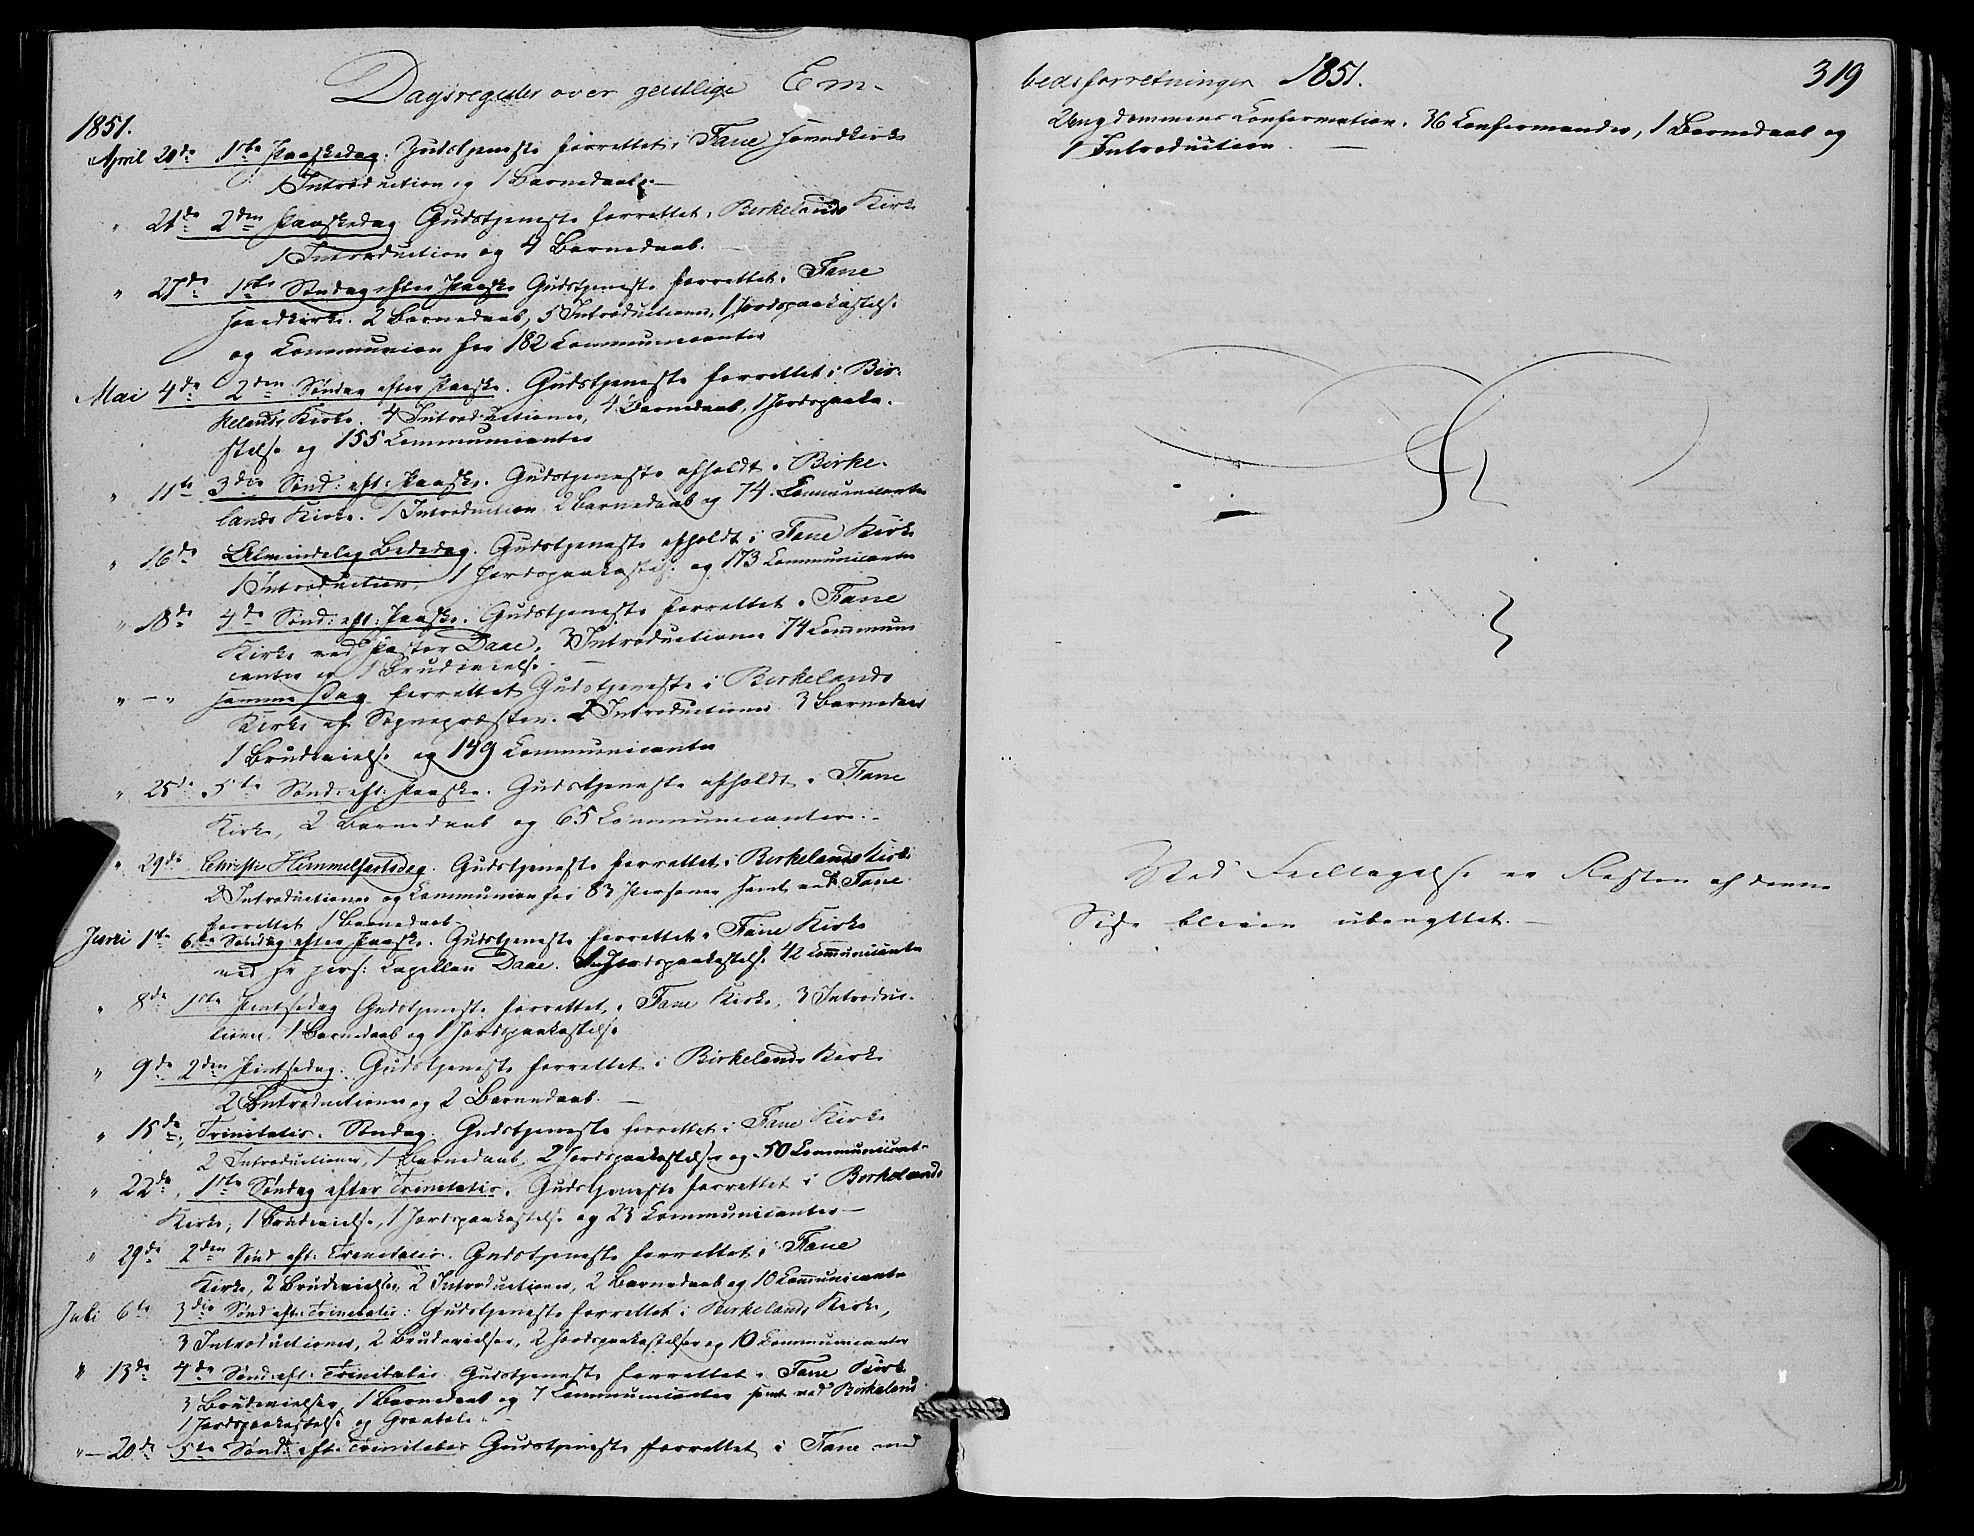 Dagsregister over geistlige Em-
1851.
April 20de 1ste Paaskedag. Gudstjeneste forrettet i Fane Hovedkirke
1 Introduction og 1 Barnedaab.—
" 21de 2den Paaskedag Gudstjeneste forrettet i Birkelands Kirke
1 Introduction og 4 Barnedaab.
" 27de 1ste Søndag efter Paaske Gudstjeneste forrettet i Fane
Hovedkirke. 2 Barnedaab, 5 Introductioner, 1 Jordspaakastelse
og Communion for 182 Communicanter
Mai 4de 2den Søndag efter Paaske. Gudstjeneste forrettet i Bir-
kelands Kirke. 4 Introductioner, 4 Barnedaab, 1 Jordspaaka-
stelse og 155 Communicanter
" 11te 3die Sønd: eft: Paaske. Gudstjeneste afholdt i Birke-
lands Kirke. 1 Introduction 2 Barnedaab og 74 Communicanter
" 16de Almindelig Bededag. Gudstjeneste afholdt i Fane Kirke
1 Introduction, 1 Jordspaakastelse og 173 Communicanter
" 18de 4de Sønd: eft: Paaske. Gudstjeneste forrettet i Fane
Kirke ved Pastor Daae. 3 Introductioner 74 Communi
canter og 1 Brudevielse.—
" — " samme Dag forrettet Gudstjeneste i Birkelands
Kirke af Sognepræsten. 2 Introductioner 3 Barnedaab
1 Brudevielse og 149 Communicanter
" 25de 5te Sønd: eft: Paaske. Gudstjeneste afholdt i Fane
Kirke, 2 Barnedaab og 65 Communicanter.—
" 29de Christi Himmelfartsdag. Gudstjeneste forrettet i Birkelands Kirke
2 Introductioner og Communion for 83 Personer samt ved Fane
forrettet 1 Barnedaab.
Juni 1ste 6te Søndag efter Paaske. Gudstjeneste forrettet i Fane Kirke
ved Hr pers: Capellan Daae. Jordspaakastelse 42 Communicanter
" 8de 1ste Pintsedag Gudstjeneste forrettet i Fane Kirke, 3 Introduc-
tioner, 1 Barnedaab og 1 Jordspaakastelse
" 9de 2den Pintsedag. Gudstjeneste forrettet i Birkelands Kirke
2 Introductioner og 2 Barnedaab.—
" 15de, Trinitatis Søndag. Gudstjeneste forrettet i Fane Kirke
2 Introductioner, 1 Barnedaab, 2 Jordspaakastelser og 50 Communicant-
" 22de, 1ste Søndag efter Trinitatis. Gudstjeneste forrettet i Birkelands
Kirke, 1 Brudevielse, 1 Jordspaakastelse og 23 Communicanter—
" 29de 2den Sønd eft: Trinitatis. Gudstjeneste forrettet i Fane
Kirke, 2 Brudevielser, 2 Introductioner, 2 Barnedaab og 10 Communicanter
Juli 6te 3die Sønd eft: Trinitatis: Gudstjeneste forrettet i Birkelands Kirke,
3 Introductioner, 2 Brudevielser, 2 Jordspaakastelser og 10 Communicanter
" 13de 4de Sønd: eft: Trinitatis Gudstjeneste forrettet i Fane Kirke
3 Brudevielser, 1 Barnedaab og 7 Communicanter samt ved Birkeland
1 Jordspaakastelse og Gravtale.
" — 20de 5te Sønd: eft: Trinitatis Gudstjeneste forrettet i Fane med
bedsforretninger 1851.
319
Ungdommens Confirmation. 36 Confirmander, 1 Barnedaab og
1 Introduction.—
Ved Feiltagelse er Resten af denne
Side bleven ubenyttet.—